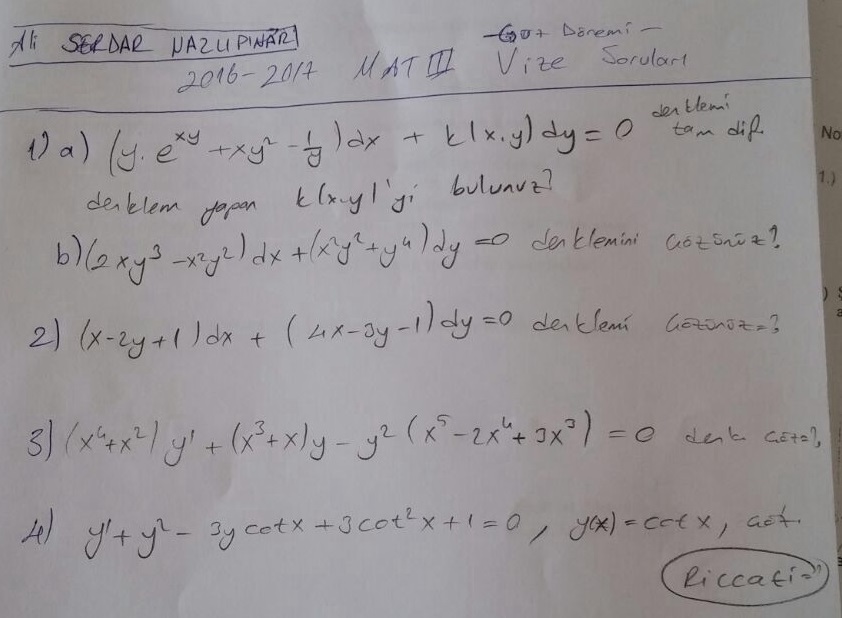 Ali SERDAR NAZLIPINAR
- Güz Dönemi -
2016-2017 MAT III Vize Soruları
1) a) (y.e^xy + xy² - 1/y)dx + k(x,y)dy = 0 denklemi tam dif.
denklem yapan k(x,y)'yi bulunuz?
b) (2xy³ - x²y²)dx + (x²y² + y⁴)dy = 0 denklemini çözünüz?
2) (x-2y+1)dx + (4x-3y-1)dy = 0 denklemi çözünüz=?
3) (x⁴+x²)y' + (x³+x)y - y²(x⁵-2x⁴+3x³) = 0 denk. çöz=?
4) y' + y² - 3y cotx + 3cot²x + 1 = 0, y(x) = cotx, çöz.
Riccati=?
No
1.)